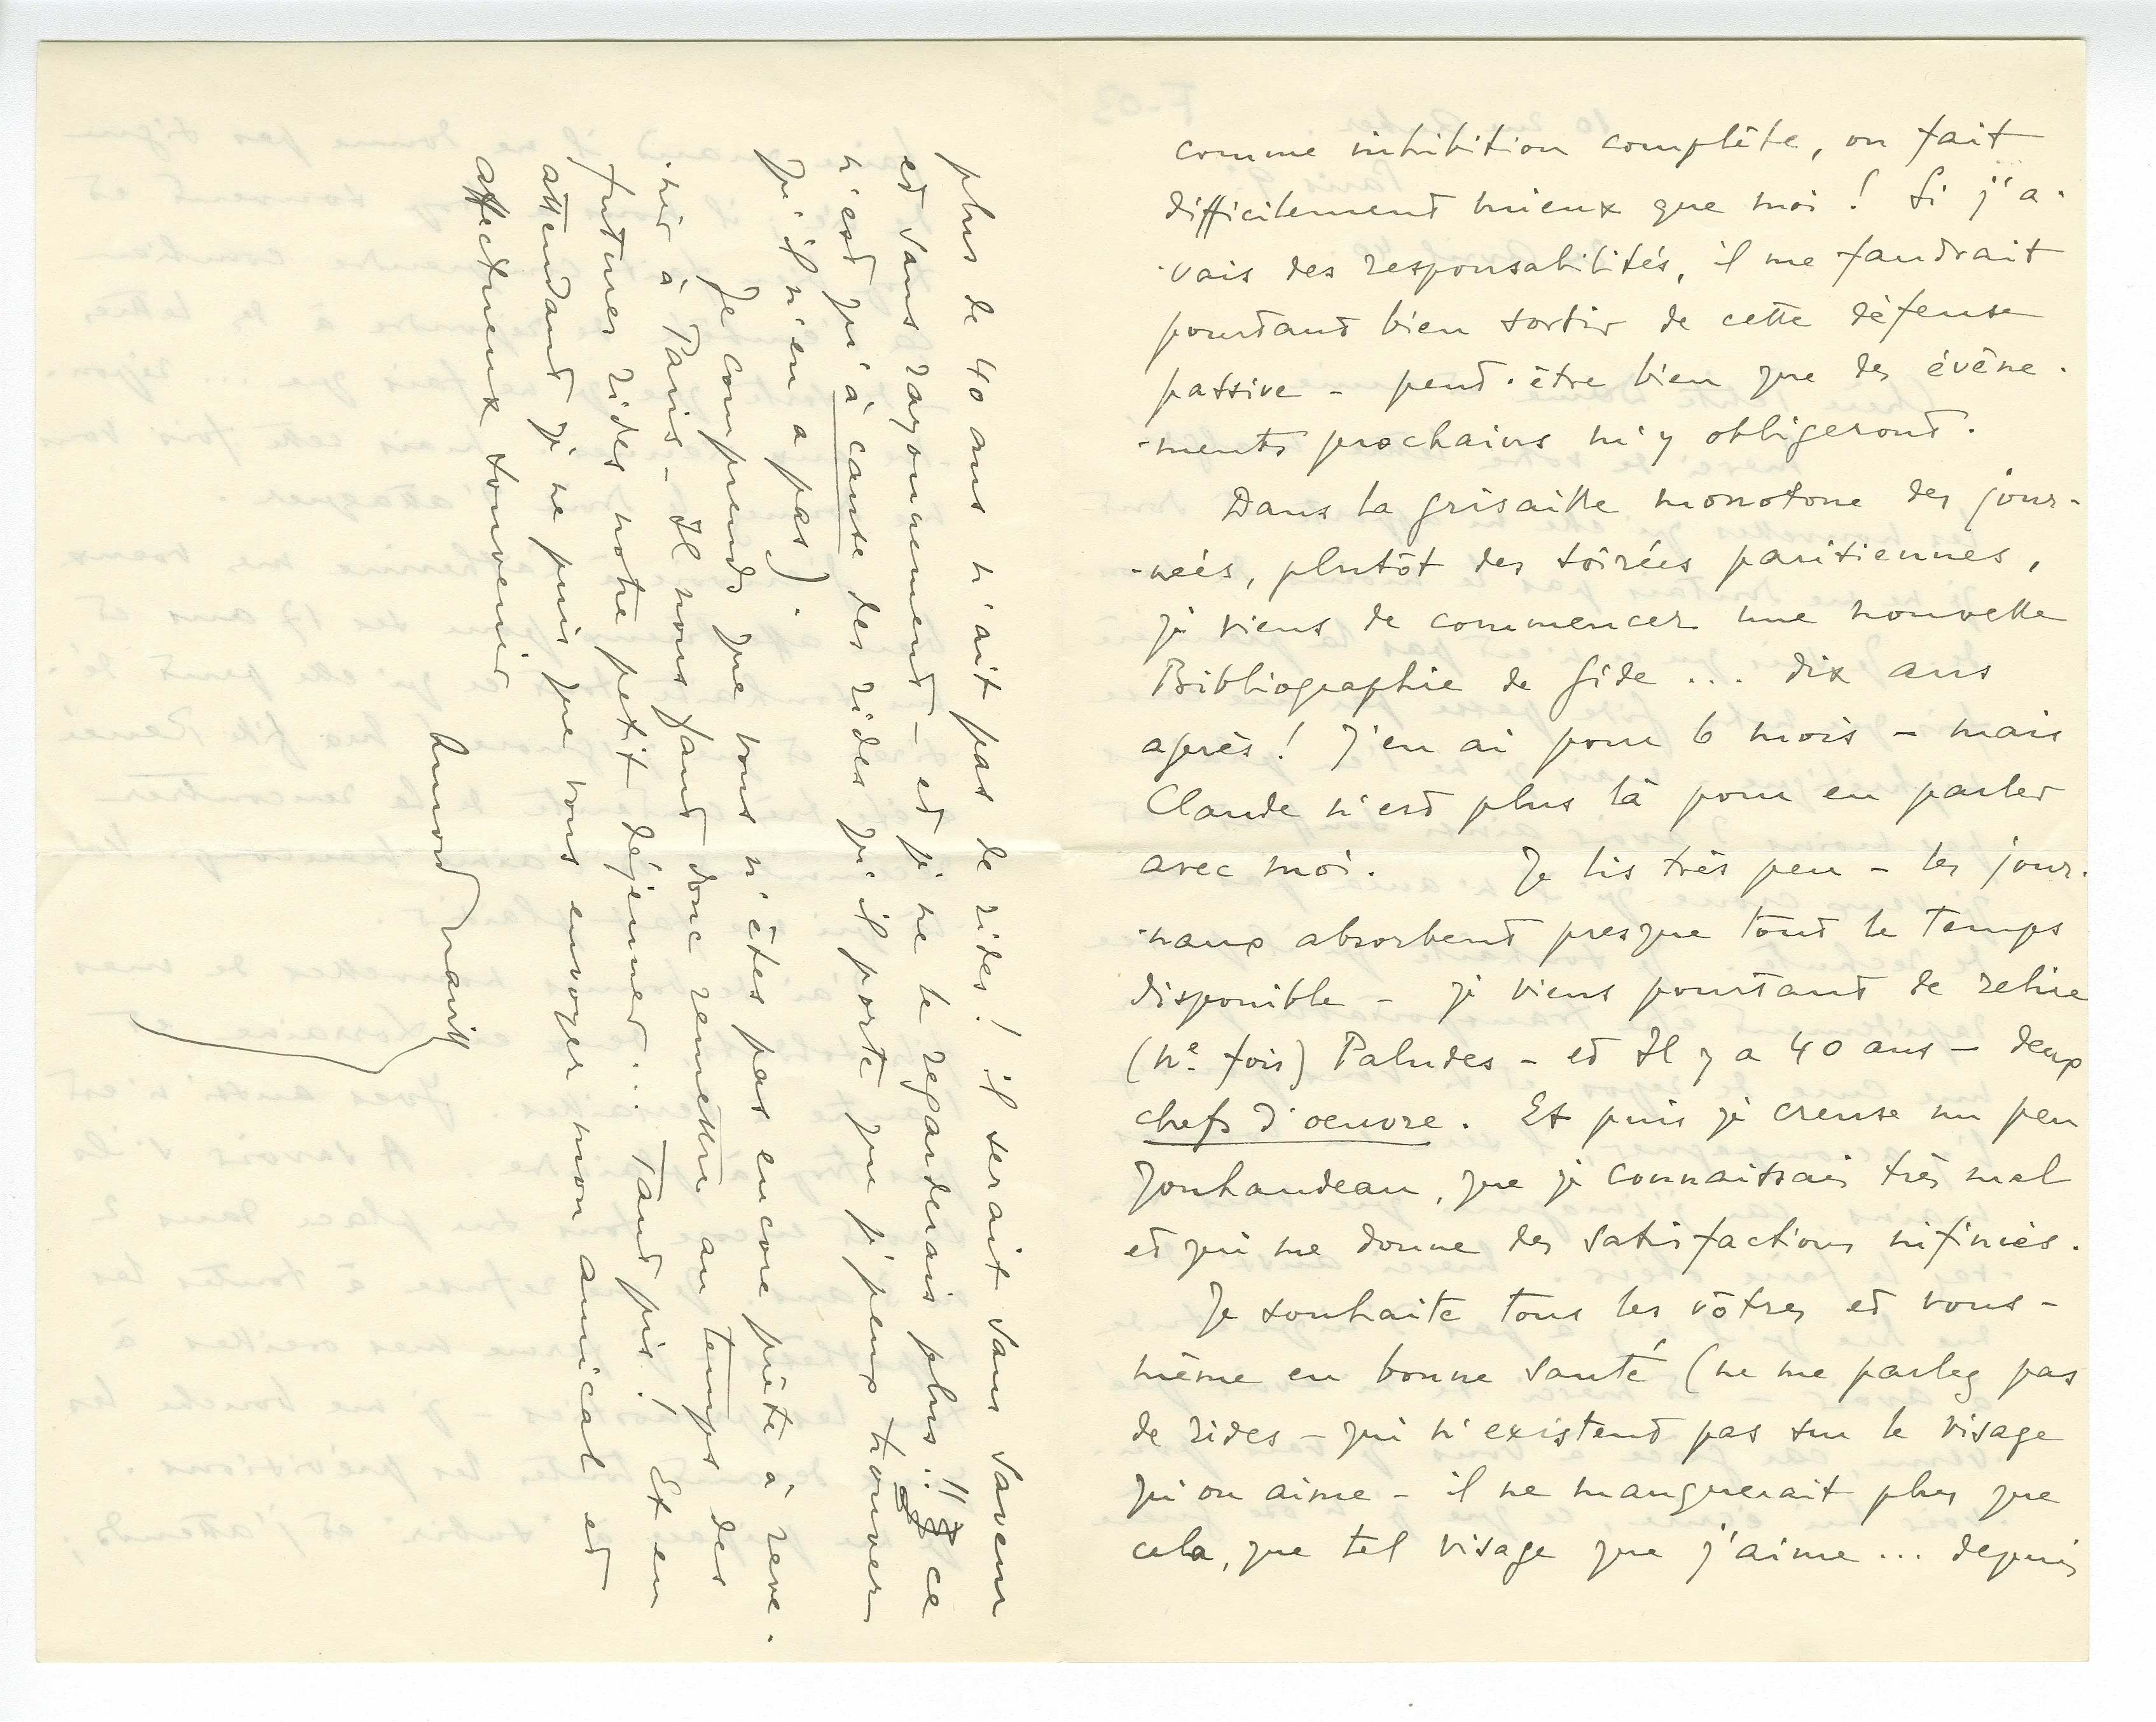 comme inhibition complète, on fait
difficilement mieux que moi ! Si j'a-
-vais des responsabilités, il me faudrait
pourtant bien sortir de cette défense
passive - peut-être bien que des évène-
-ments prochains m'y obligeront.
Dans la grisaille monotone des jour-
-nées, plutôt des soirées parisiennes,
je viens de commencer une nouvelle
Bibliographie de Gide ... dix ans
après ! J'en ai pour 6 mois - mais
Claude n'est plus là pour en parler
avec moi. Je lis très peu - les jour-
-naux absorbent presque tout le temps
disponible - je viens pourtant de relire
(ne fois) Paludes - et Il y a 40 ans - deux
chefs d'oeuvre. Et puis je creuse un peu
Jouhandeau, que je connaissais très mal
et qui me donne des satisfactions infinies.
Je souhaite tous les vôtres et vous-
même en bonne santé (ne me parlez pas
de rides - qui n'existent pas sur le visage
qu'on aime - il ne manquerait plus que
cela, que tel visage que j'aime ... depuis
plus de 40 ans n'ait pas de rides ! il serait sans saveur
et sans rayonnement - et je ne le regarderais plus !! ce
n'est qu'à cause des rides qu'il porte que je peux trouver
qu'il n'en a pas).
Je comprends que vous n'êtes pas encore prête à reve-
-nir à Paris - Il nous faut donc remettre au temps des
futures rides notre petit déjeuner ... Tant pis ! Et en
attendant je ne puis que vous envoyer mon amical et
affectueux souvenir
Arnold Naville